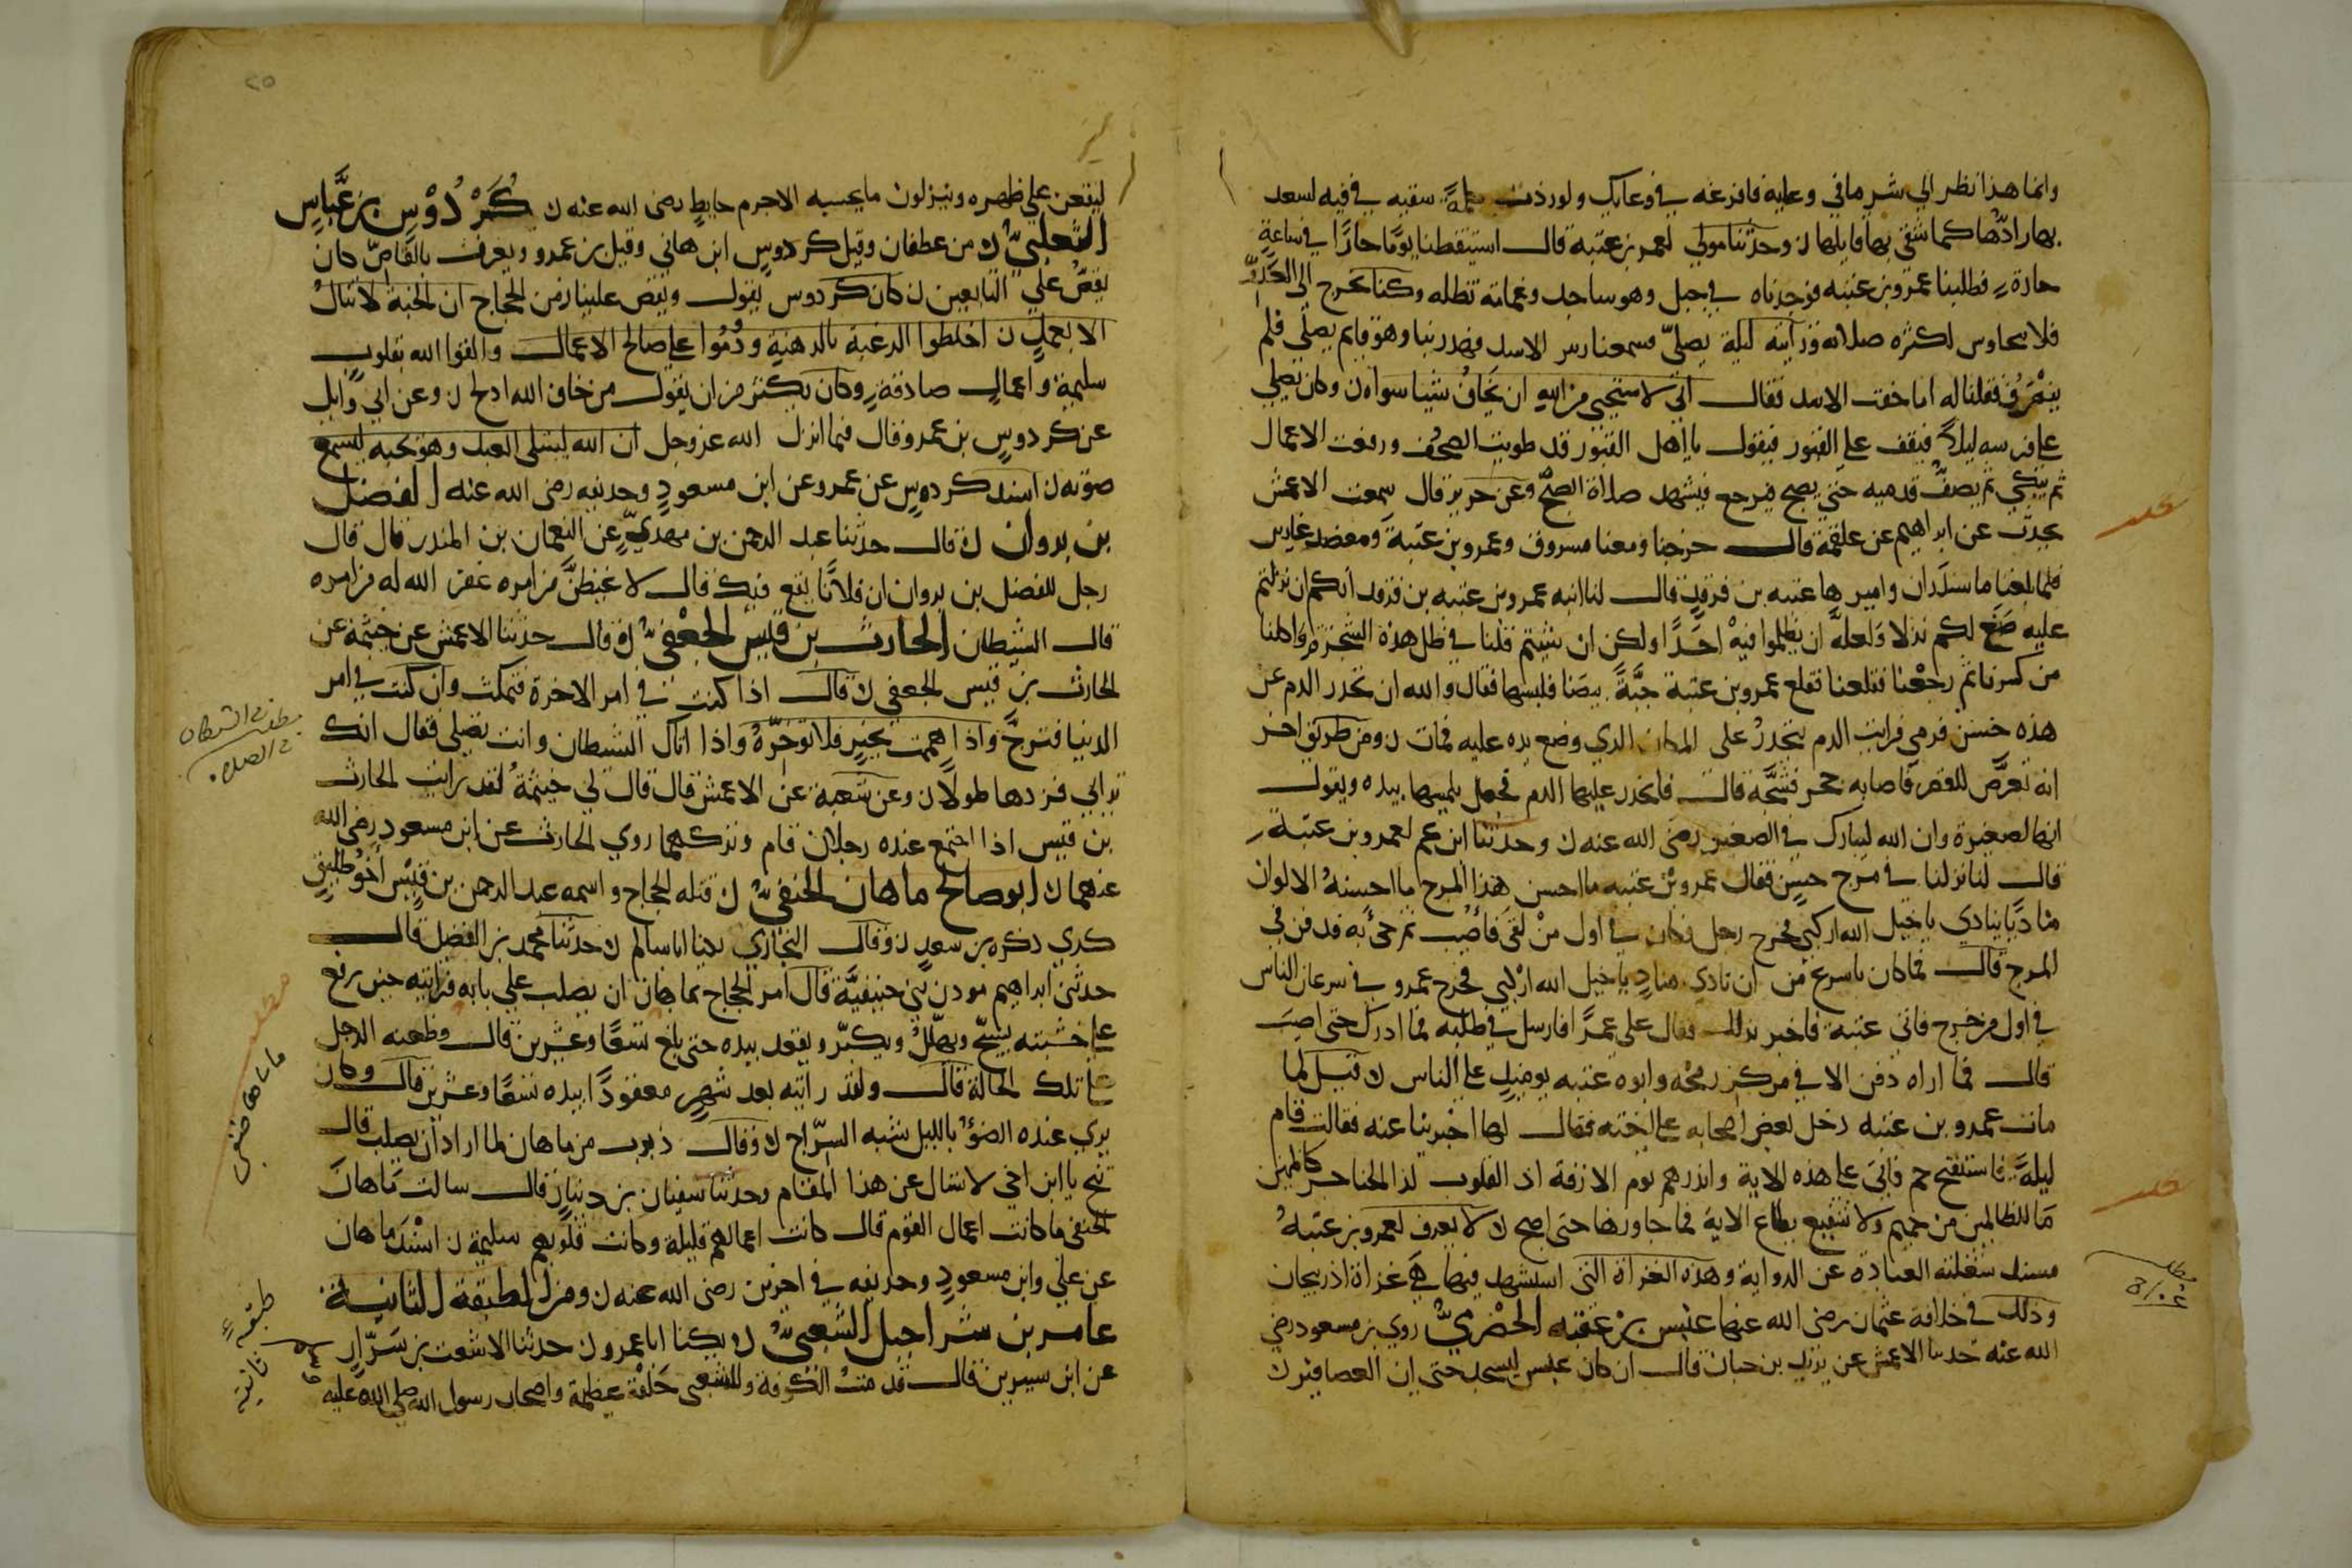 وانما هذا نظر الي شر ما في وعايه فافرغه في وعايك ولو ردت كلمة سفيه في فيه لسعد
بها رادّها كما شقي بها قايلها ن وحدثنا مولي لعمرو بن عتبة قال استيقظنا يومًا حارًا في ساعةٍ
حارة فطلبنا عمرو بن عتبه فوجدناه في جبل وهو ساجد وغمامة تظله وكنا نخرج الي العدوّ
فلا نتحارس لكثره صلاته ورايته ليلة يصليّ فسمعنا زير الاسد فهربنا وهو قايم يصلي فلم
ينصرف فقلنا له اما خفت الاسد فقال اني لاستحيي من الله ان اخاف شيئا سواه ن وكان يصلي
علي فرسه ليلاً فيقف علي القبور فيقول يا اهل القبور قد طويت الصحف ورفعت الاعمال
ثم يبكي ثم يصفّ قدميه حتي يصبح فيرجع فيشهد صلاة الصبح وعن جرير قال سمعت الاعمش
يحدث عن ابراهيم عن علقمة قال خرجنا ومعنا مسروق وعمرو بن عتبة ومعضد غازين
فلما بلغنا ماسبذان واميرها عتبه بن فرقد قال لنا ابنه عمرو بن عتبه بن فرقد انكم ان نزلتم
عليه صنع لكم نزلا ولعله ان يظلموا فيه احدًا ولكن ان شيتم قلنا في ظل هذه الشجرة واكلنا
من كسرنا ثم رجعنا ففعلنا فقطع عمرو بن عتبة جبّةً بيضا فلبسها فقال والله ان تحدر الدم علي
هذه حسن فرمي فرايت الدم يتحدر علي المكان الذي وضع يده عليه فمات ن ومن طريق اخر
انه تعرّض للقصر فاصابه حجر فشجّه قال فتحدر عليها الدم فجعل يلمسها بيده ويقول
انها لصغيرة وان الله ليبارك في الصغير رضي الله عنه ن وحدثنا ابن عم لعمرو بن عتبة
قال لنا نزلنا في مرج حسنٍ فقال عمرو بن عتبه ما احسن هذا المرج ما احسنهُ الا لوان
مناديًا ينادي يا خيل الله اركبي فخرج رجل فكان في اول من لقي فاصيب ثم جيء به فدفن في
المرج قال فما كان باسرع من ان نادي منادٍ يا خيل الله اركبي فخرج عمرو في سرعان الناس
في اول من خرج فاتي عتبة فاخبر بذلك فقال علي عمرًا فارسل في طلبه فما ادرك حتي اصيب
قال فما اراه دفن الا في مركز رمحه وابوه عتبه يوميذٍ علي الناس ن قيل لما
مات عمرو بن عتبه دخل بعض اصحابه علي اخته فقال لها اخبرينا عنه فقالت قام
ليلة فاستفتح حم فاتي علي هذه الاية وانذرهم يوم الازفة اذ القلوب لدا الحناجر كاظمين
ما للظالمين من حميم ولا شفيع يطاع الاية فما جاوزها حتي اصبح ن لا يعرف لعمرو بن عتبهُ
مسند شغلته العبادة عن الرواية وهذه الغزاة التي استشهد فيها هي غزاة اذربيجان
وذلك في خلافة عثمان رضي الله عنها عنبس بن عقبه الحضرميّ روي بن مسعود رضي
الله عنه حدثنا الاعمش عن يزيد بن حبان قال ان كان عنبس ليسجد حتي ان العصافير ن
مطلب
مطلب
مطلب
ليقعن علي ظهره وينزلون ما يحسبه الا جرم حايطٍ رضي الله عنه ن كُرْدُوْسِ بن عبَّاسٍ
الثعلبيّ ن من غطفان وقيل كردوسٍ ابن هاني وقيل بن عمرو ويعرف بالقاصّ كان
يقصّ علي التابعين ن كان كردوس يقول ويقص علينا زمن الحجاج ان الجنة لا تنال
الا بعملٍ ن اخلطوا الرغبة بالرهبة ودُمُوا علي صالح الاعمال والقوا الله بقلوب
سليمة واعمالٍ صادقة وكان يكثر من ان يقول من خاف الله ادلج ن وعن ابي وايل
عن كردوسٍ بن عمرو قال فيما انزل الله عز وجل ان الله ليبتلي العبد وهو يحبه ليسمع
صوته ن اسند كردوس عن عمرو عن ابن مسعود وحذيفه رضي الله عنه الفضل
بن بزوان ن قال حدثنا عبد الرحمن بن مهديّ عن النعمان بن المنذر قال قال
رجل للفضل بن بزوان ان فلانًا يقع فيك قال لاغيظنّ من امره غفر الله له من امره
قال الشيطان الحارث بن قيس الجعفيّ ن قال حدثنا الاعمش عن خيثمة عن
الحارث بن قيس الجعفي ن قال اذا كنت في امر الاخرة فتمكث وان كنت في امر
الدنيا فتوخّ واذا هممت بخيرٍ فلا توخّرهُ واذا اتاك الشيطان وانت تصلي فقال انك
تراي فزدها طولًا ن وعن شعبة عن الاعمش قال قال لي خيثمةُ لقد رايت الحارث
بن قيس اذا اجتمع عنده رجلان قام وتركهما روي الحارث عن ابن مسعود رضي الله
عنهما ن ابو صالح ماهان الحنفيّ ن قتله الحجاج واسمه عبد الرحمن بن قيسٍ اخو طليقٍ
كدي ذكره بن سعدٍ ن وقال البخاري يكنا ابا سالم ن حدثنا محمد بن الفضل قال
حدثني ابراهيم موذن بني حنيفيَّة قال امر الحجاج بماهان ان يصلب علي بابه فرايته حين رفع
علي خشبته يسبّح ويهلّلُ ويكبّر ويعقد بيده حتي بلغ تسعًا وعشرين قال وطعنه الرجل
علي تلك الحالة قال ولقد رايته بعد شهرٍ معقودًا بيده تسعًا وعشرين قال وكان
يري عنده الضوُ بالليل شبه السرّاج ن وقال ذبوب من ماهان لما اراد ان يصلب قال
تنح يا ابن اخي لا تسال عن هذا المقام وحدثنا سفيان بن دينارٍ قال سالت ماهان
الحنفي ما كانت اعمال القوم قال كانت اعمالهم قليلة وكانت قلوبهم سليمة ن اسند ماهان
عن علي وابن مسعودٍ وحذيفه في اخرين رضي الله عنه ن ومن الطبقة الثانية
عامر بن شراحيل الشعبيّ ن ويكنا ابا عمرو ن حدثنا الاشعث بن سَرّار
عن ابن سيرين قال قدمتُ الكوفة وللشعبي حَلقة عظيمة واصحاب رسول الله صلي الله عليه
الشيطان
في الصلاه
مطلب
ماهان حنفي
طبقهء ثانيه